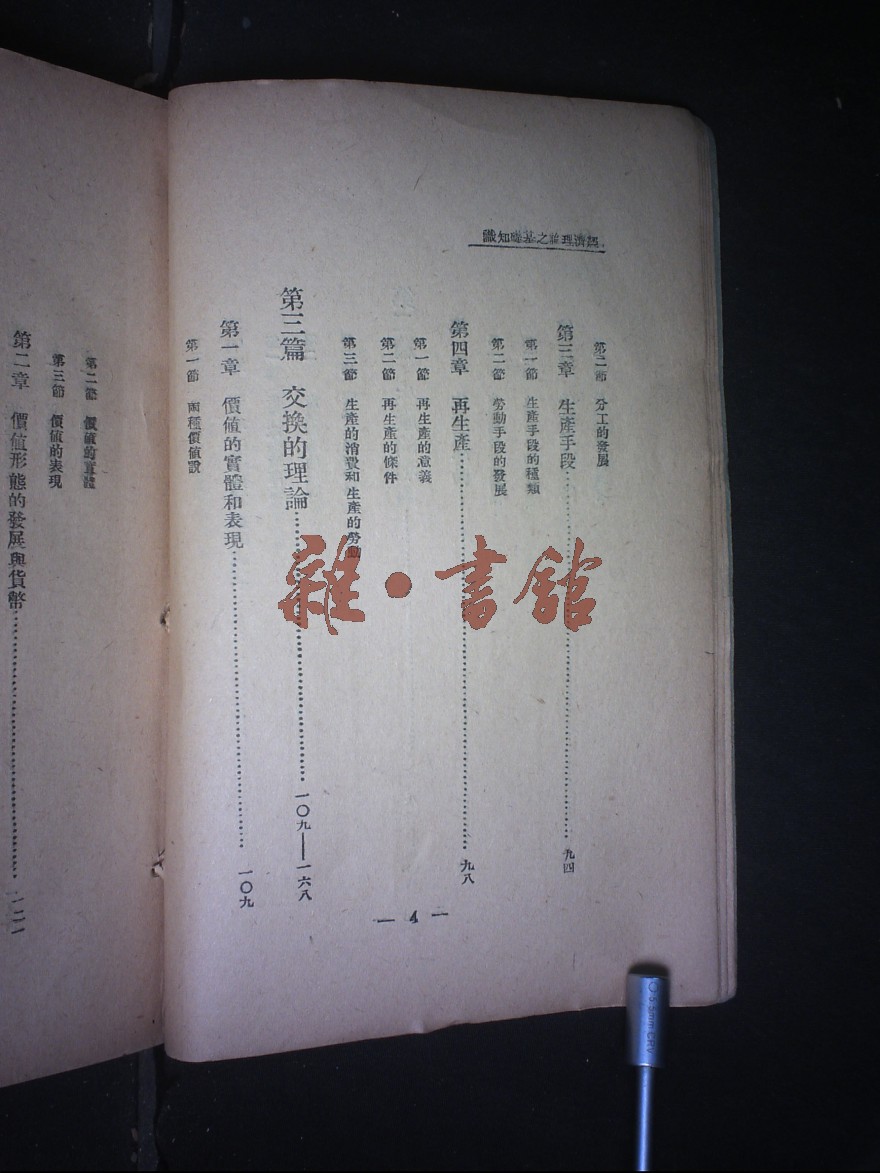 經濟理論之基礎知識
第二節 分工的發展
第三章 生產手段……九四
第一節 生產手段的種類
第二節 勞動手段的發展
第四章 再生產……九八
第一節 再生產的意義
第二節 再生產的條件
第三節 生產的消費和生產的勞動
第三篇 交換的理論……一〇九——一六八
第一章 價值的實體和表現……一〇九
第一節 兩種價值說
— 4 —
第二節 價值的實體
第三節 價值的表現
第二章 價值形態的發展與貨幣……一二一
雜·書館
0.5mm ERV